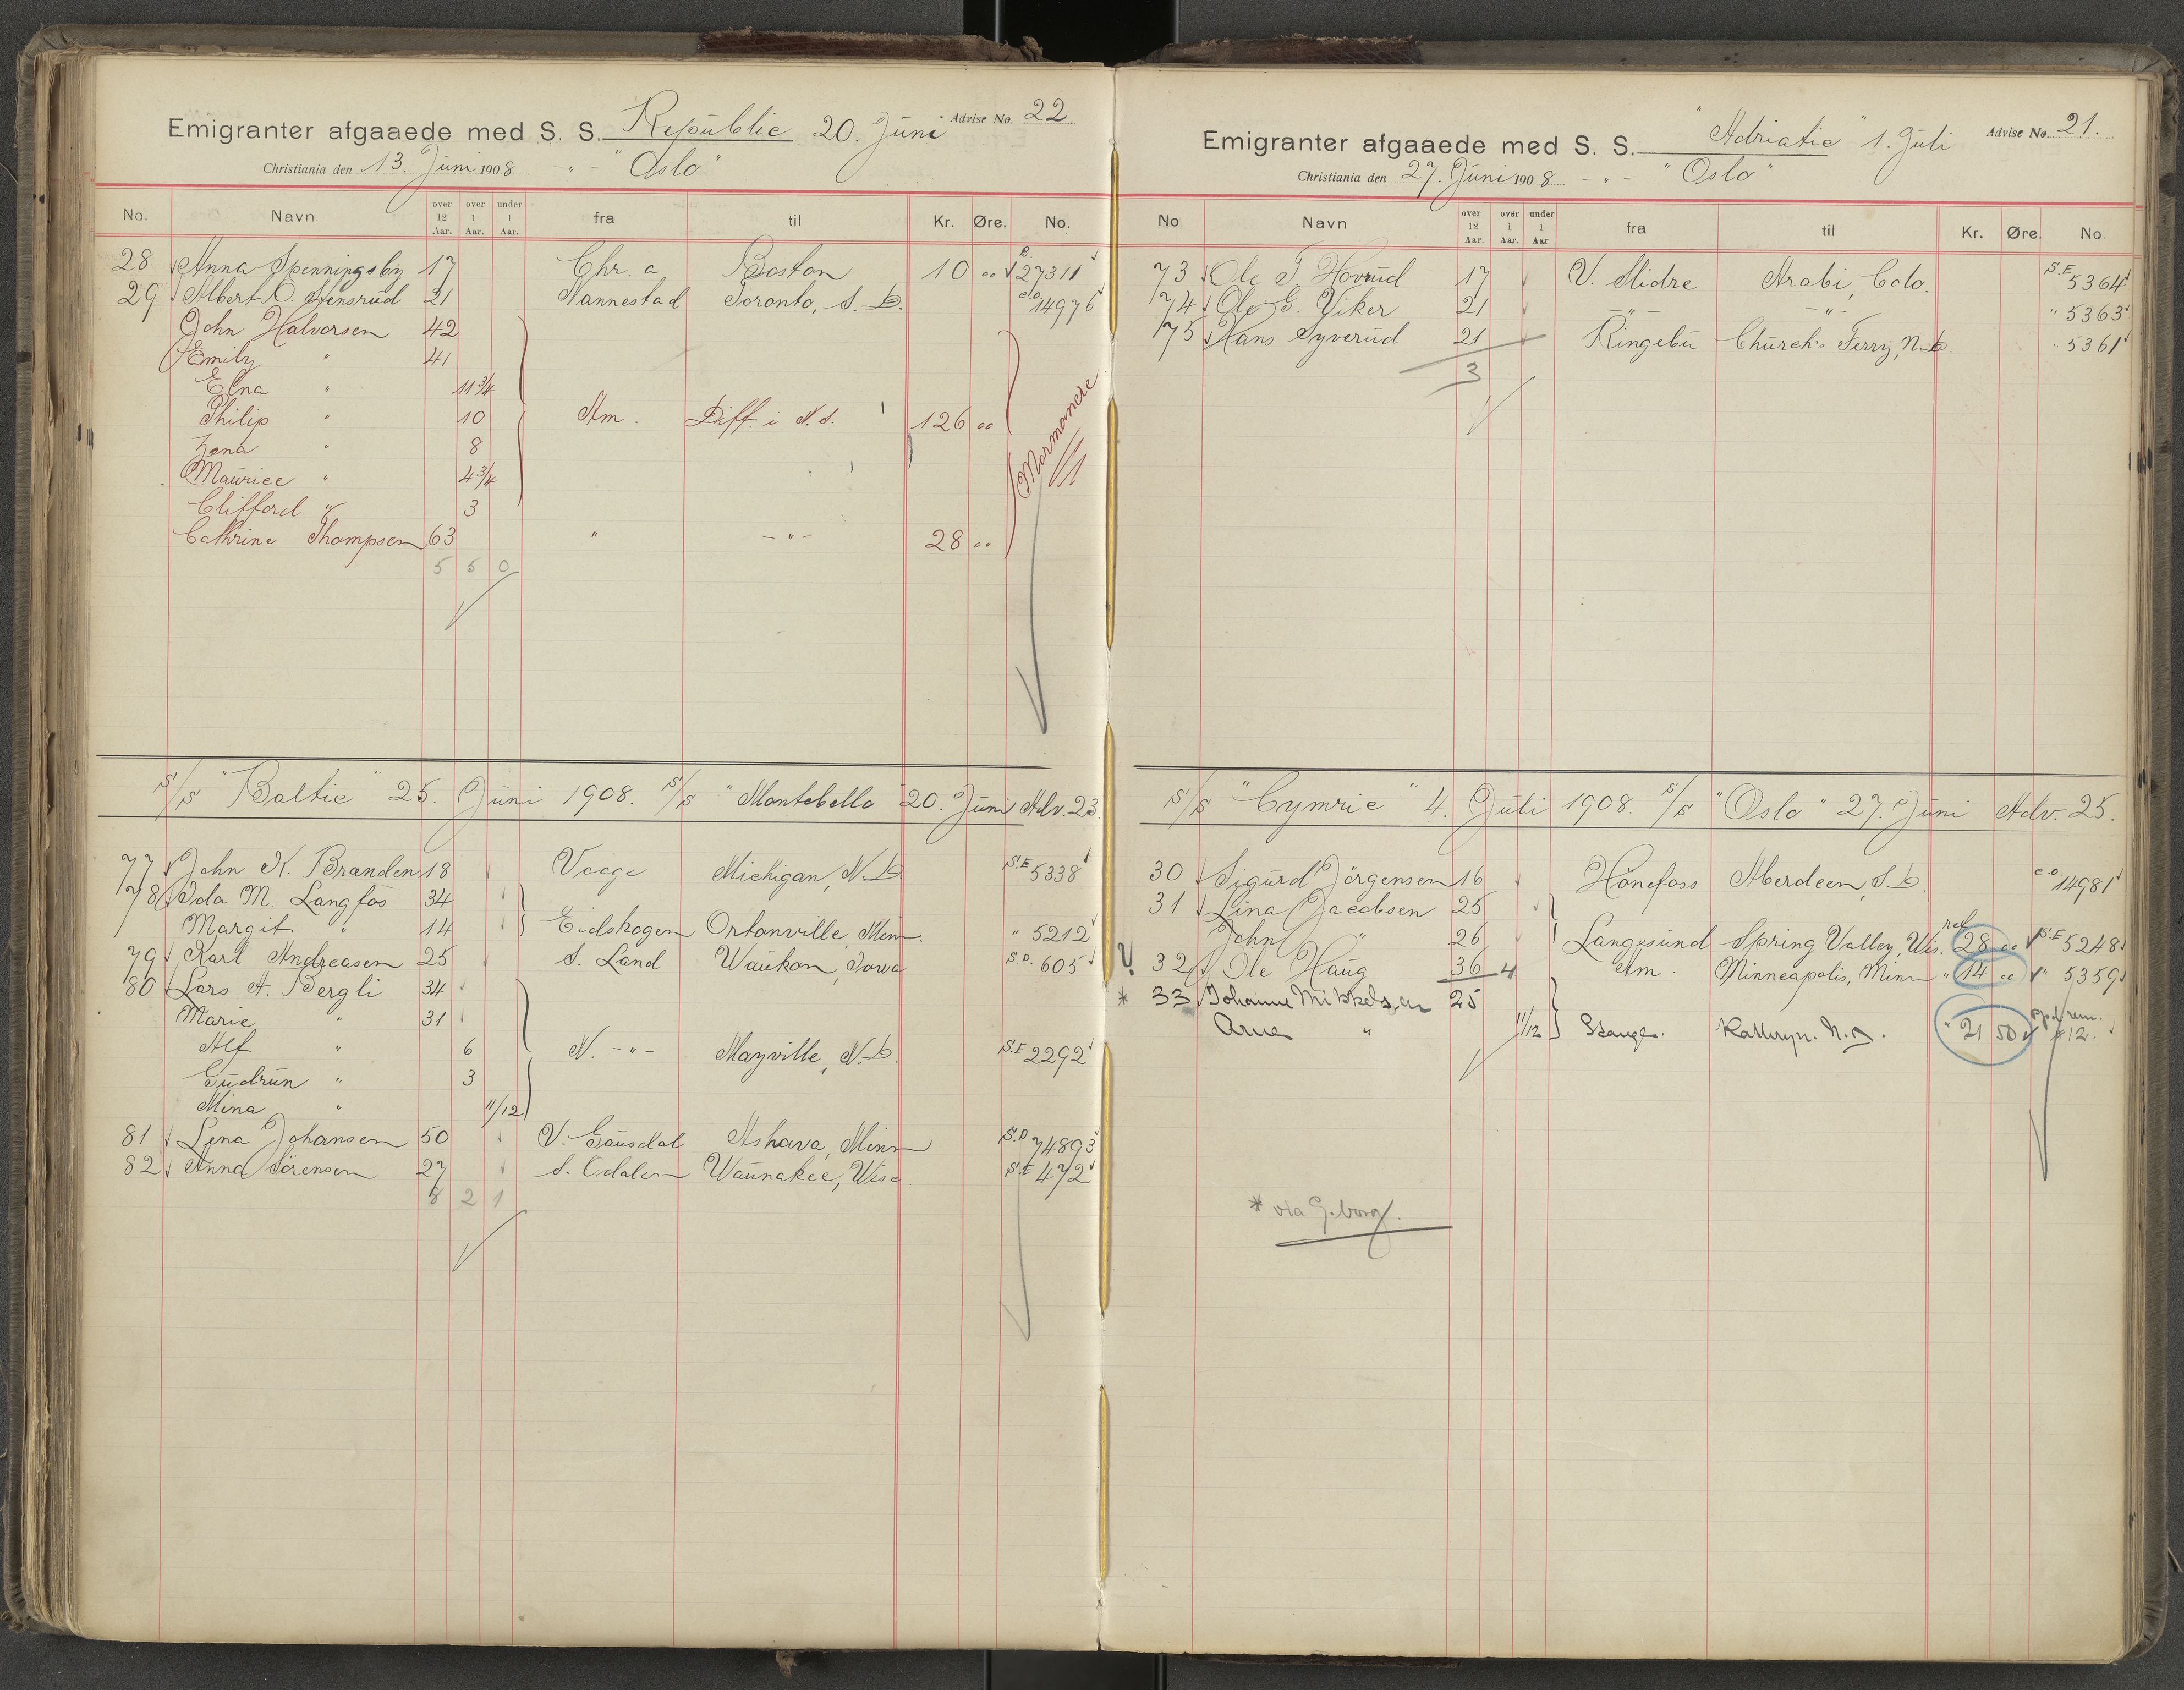 Emigranter afgaaede med S. S. Republic 20. Juni Advise No. 22.
Christiania den 13. Juni 1908 - " - "Oslo"
No. Navn over 12 Aar. over 1 Aar. under 1 Aar. fra til Kr. Øre. No.
28 Anna Spenningsby 17 Chr. a Boston 10 00 B. 27311
29 Albert O. Stensrud 21 Nannestad Toronto, S. D. 14976
John Halvorsen 42
Emily " 41
Elna " 11 3/4
Philip " 10 Am. Diff. i N. S. 126 00 Mormonde
Lena " 8
Maurice " 4 3/4
Clifford " 3
Cathrine Thompson 63 " - " - 28 00
5 5 0
S/S "Baltic" 25. Juni 1908. S/S "Montebello" 20. Juni Adv. 23.
77 John K. Branden 18 Vaage Michigan, N. D. S.E 5338
78 Ida M. Langfos 34
Margit " 14 Eidskogen Ortonville, Minn. " 5212
79 Karl Andreasen 25 S. Land Waukon, Iowa S.D. 605
80 Lars A. Bergli 34
Marie " 31
Alf " 6 N. - " - Mayville, N. D. S.E 2292
Gudrun " 3
Mina " 11/12
81 Lina Johansen 50 V. Gausdal Ashava, Minn S.D 74893
82 Anna Sörensen 27 S. Odalen Waunakee, Wisc. S.E 472
8 2 1
Emigranter afgaaede med S. S. "Adriatic" 1. Juli Advise No. 21.
Christiania den 27. Juni 1908 - " - "Oslo"
No Navn over 12 Aar. over 1 Aar. under 1 Aar fra til Kr. Øre. No.
73 Ole T. Hovrud 17 V. Slidre Arabi, Colo. S.E 5364
74 Ole G. Viker 21 - " - - " - " 5363
75 Hans Syverud 21 Ringebu Church's Ferry, N. D. " 5361
3
S/S "Cymric" 4. Juli 1908. S/S "Oslo" 27. Juni Adv. 25.
30 Sigurd Jörgensen 16 Hönefoss Aberdeen, S. D. 14981
31 Lina Jacobsen 25
John " 26 Langesund Spring Valley, Wis. 28 00 S.E 5248
32 Ole Haug 36 4 Am. Minneapolis, Minn " 14 00 " 5359
* 33 Johanne Mikkelsen 25
Arne " 11/12 Stange. Kathryn. N. D. " 21 50 ppd rem. # 12.
* via G.borg.